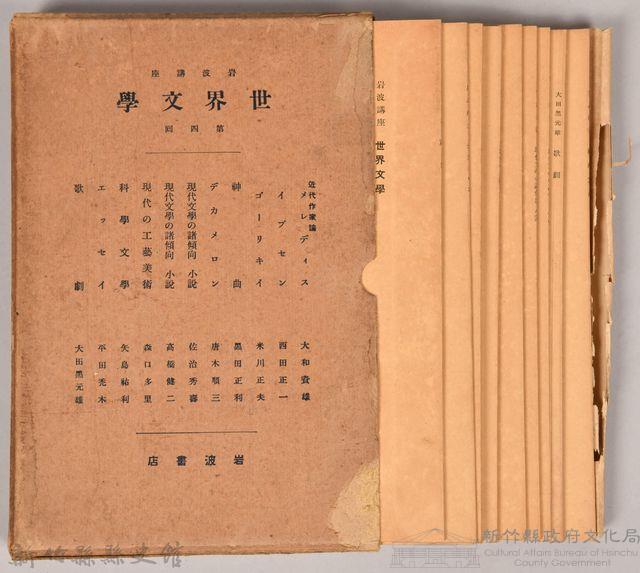 岩波講座
世界文學
第四回
近代作家論
メレディス 大和資雄
イプセン 西田正一
ゴーリキイ 米川正夫
神曲 黑田正利
デカメロン 唐木順三
現代文學の諸傾向 小說 佐治秀壽
現代文學の諸傾向 小說 高橋健二
現代の工藝美術 森口多里
科學文學 矢島祐利
エッセイ 平田禿木
歌劇 大田黑元雄
岩波書店
岩波講座 世界文學
大田黑元雄 歌劇
新竹縣縣史館
新竹縣政府文化局
Cultural Affairs Bureau of Hsinchu
County Government